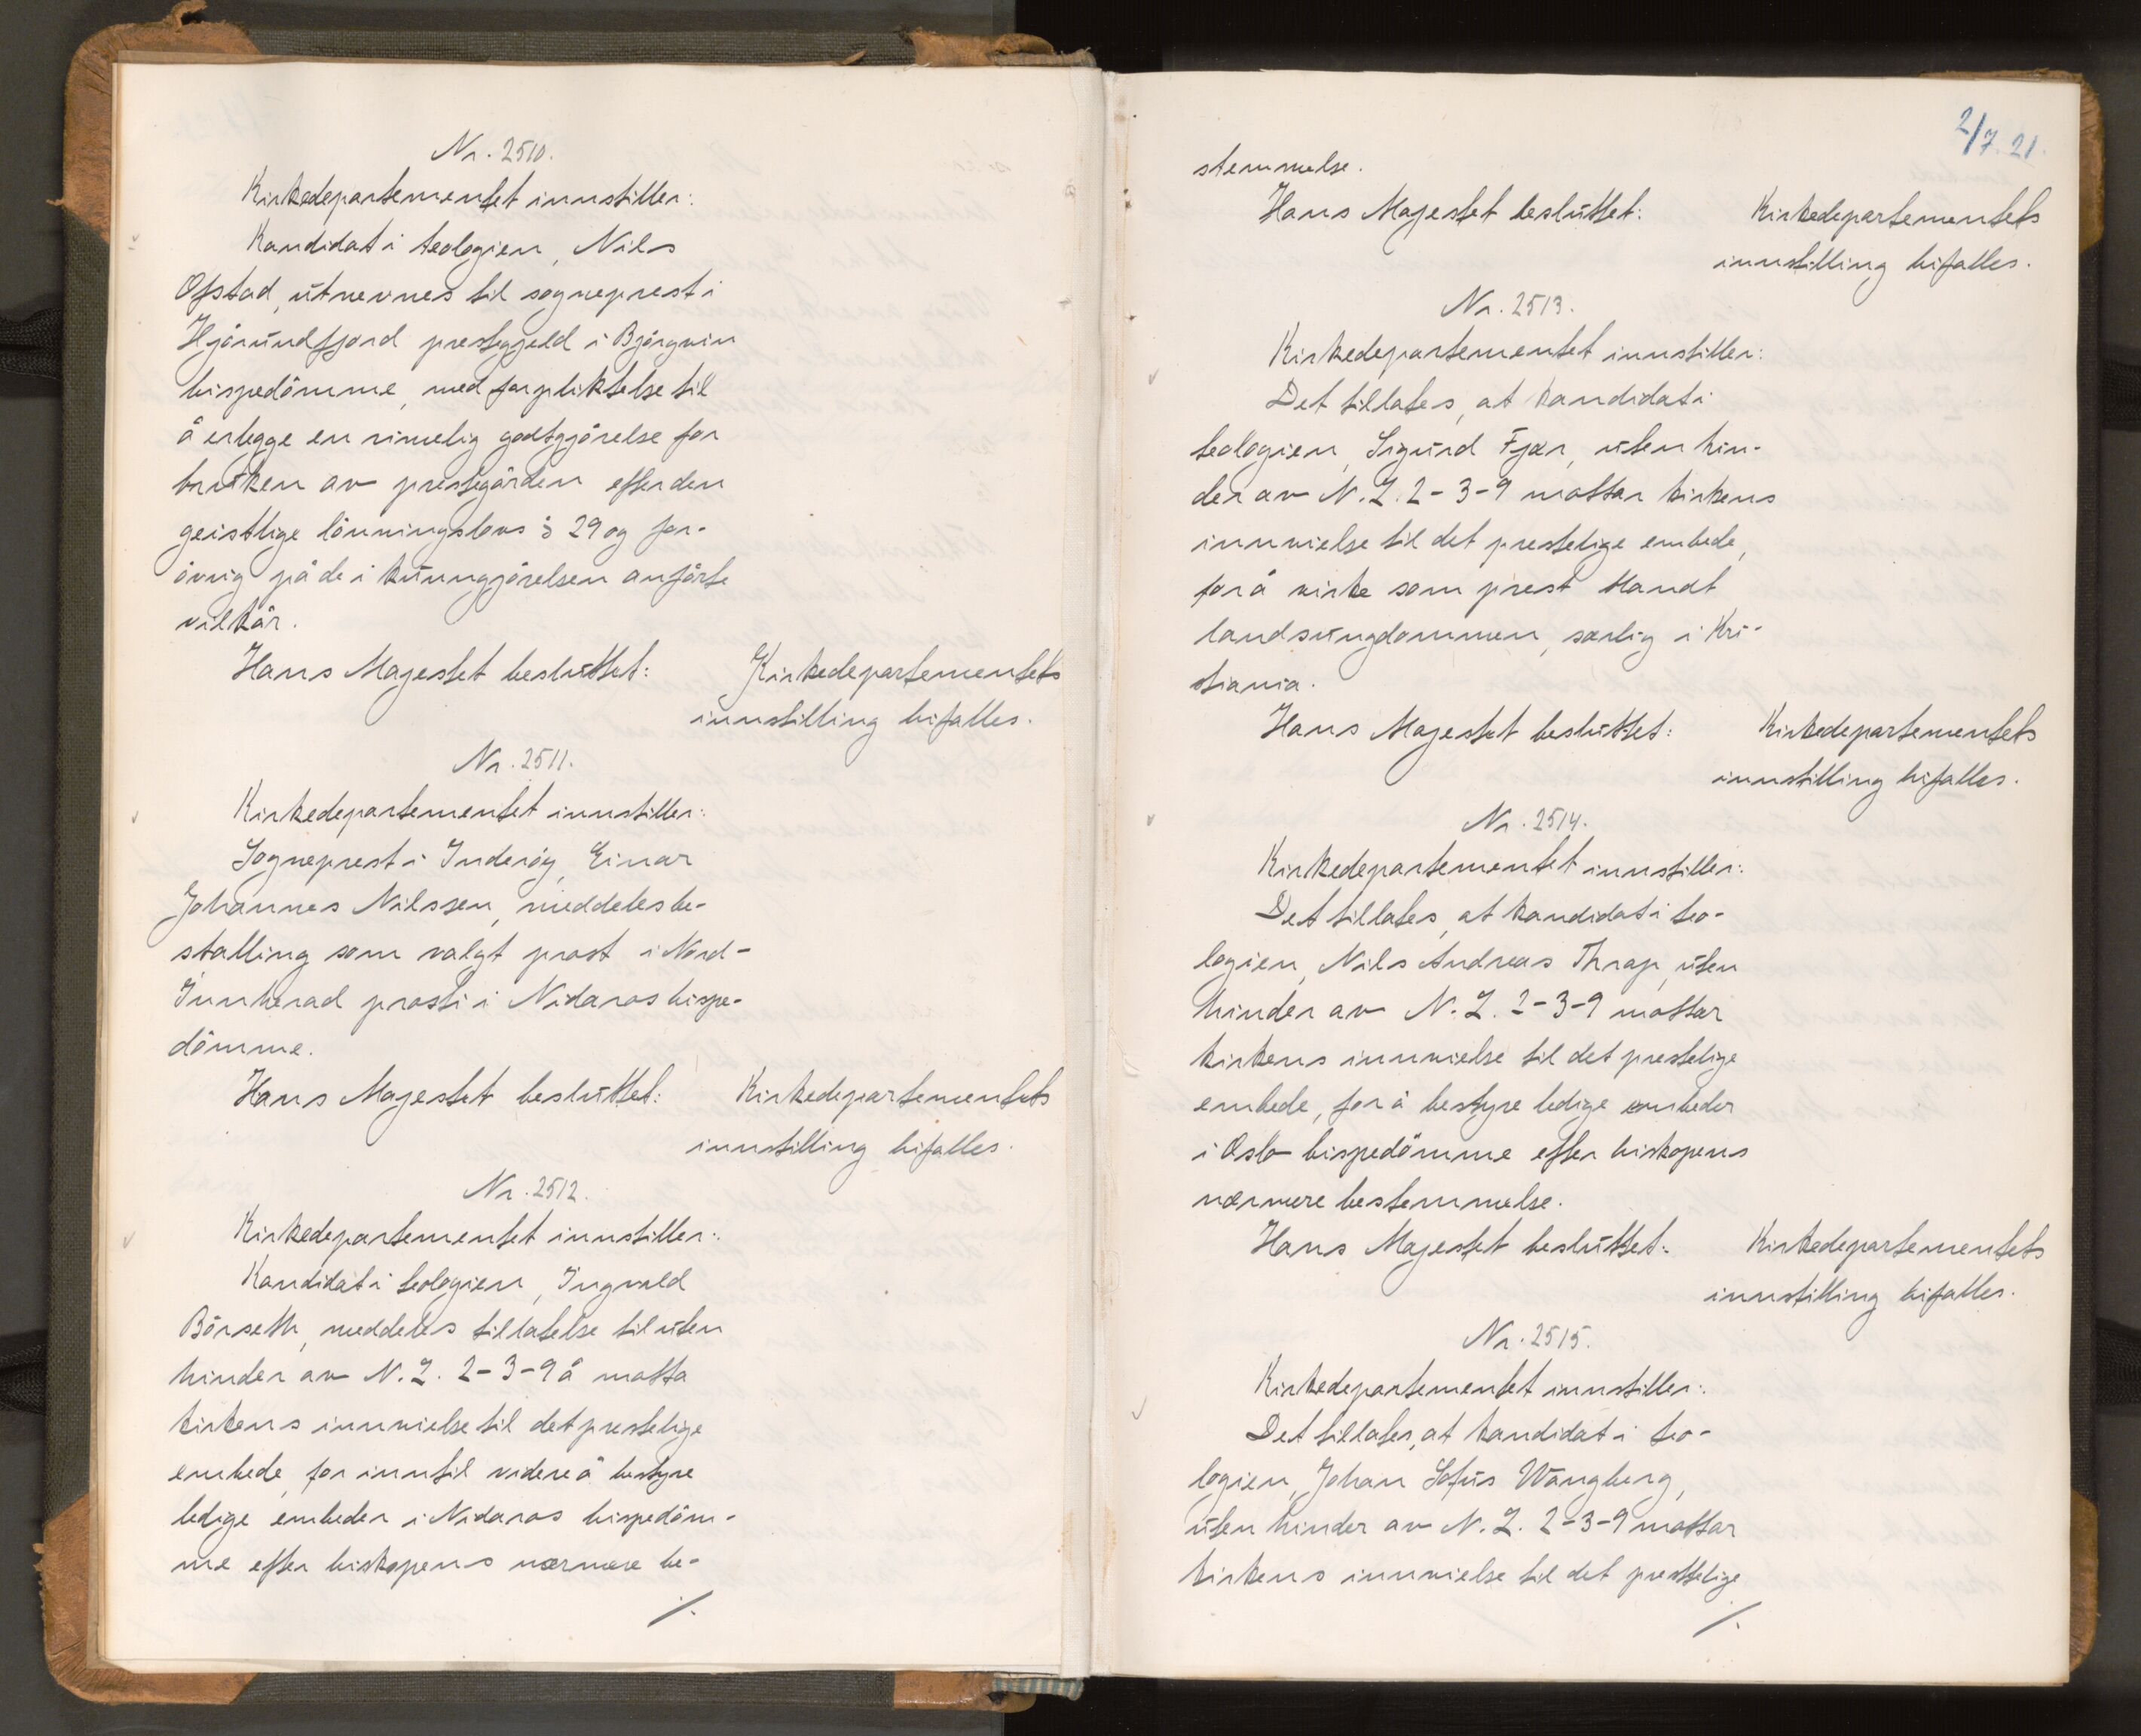 Nr. 2510.
Kirkedepartementet innstiller:
Kandidat i teologien, Nils
Ofstad, utnevnes til sogneprest i
Hjörundfjord prestegjeld i Björgvin
bispedömme, med forpliktelse til
å erlegge en rimelig godtgjörelse for
bruken av prestegården efter den
geistlige lönningslovs § 29 og for-
övrig på de i kunngjörelsen anförte
vilkår.
Hans Majestet besluttet: Kirkedepartementets
innstilling bifalles.
Nr. 2511.
Kirkedepartementet innstiller:
Sogneprest i Inderöy, Einar
Johannes Nilssen, meddeles be-
stalling som valgt prost i Nord-
Innherad prosti i Nidaros bispe-
dömme.
Hans Majestet besluttet: Kirkedepartementets
innstilling bifalles.
Nr. 2512.
Kirkedepartementet innstiller:
Kandidat i teologien, Ingvald
Börseth, meddeles tillatelse til uten
hinder av N. L. 2-3-9 å motta
kirkens innvielse til det prestelige
embede, for inntil videre å bestyre
ledige embeder i Nidaros bispedöm-
me efter biskopens nærmere be-
./.
2/7. 21.
stemmelse.
Hans Majestet besluttet: Kirkedepartementets
innstilling bifalles.
Nr. 2513.
Kirkedepartementet innstiller:
Det tillates, at kandidat i
teologien, Sigurd Fjær, uten hin-
der av N. L. 2-3-9 mottar kirkens
innvielse til det prestelige embede,
for å virke som prest blandt
landsungdommen, særlig i Kri-
stiania.
Hans Majestet besluttet: Kirkedepartementets
innstilling bifalles.
Nr. 2514.
Kirkedepartementet innstiller:
Det tillates, at kandidat i teo-
logien, Nils Andreas Thrap, uten
hinder av N. L. 2-3-9 mottar
kirkens innvielse til det prestelige
embede, for å bestyre ledige embeder
i Oslo bispedömme efter biskopens
nærmere bestemmelse.
Hans Majestet besluttet: Kirkedepartementets
innstilling bifalles.
Nr. 2515.
Kirkedepartementet innstiller:
Det tillates, at kandidat i teo-
logien, Johan Sofus Wangberg,
uten hinder av N. L. 2-3-9 mottar
kirkens innvielse til det prestelige
./.